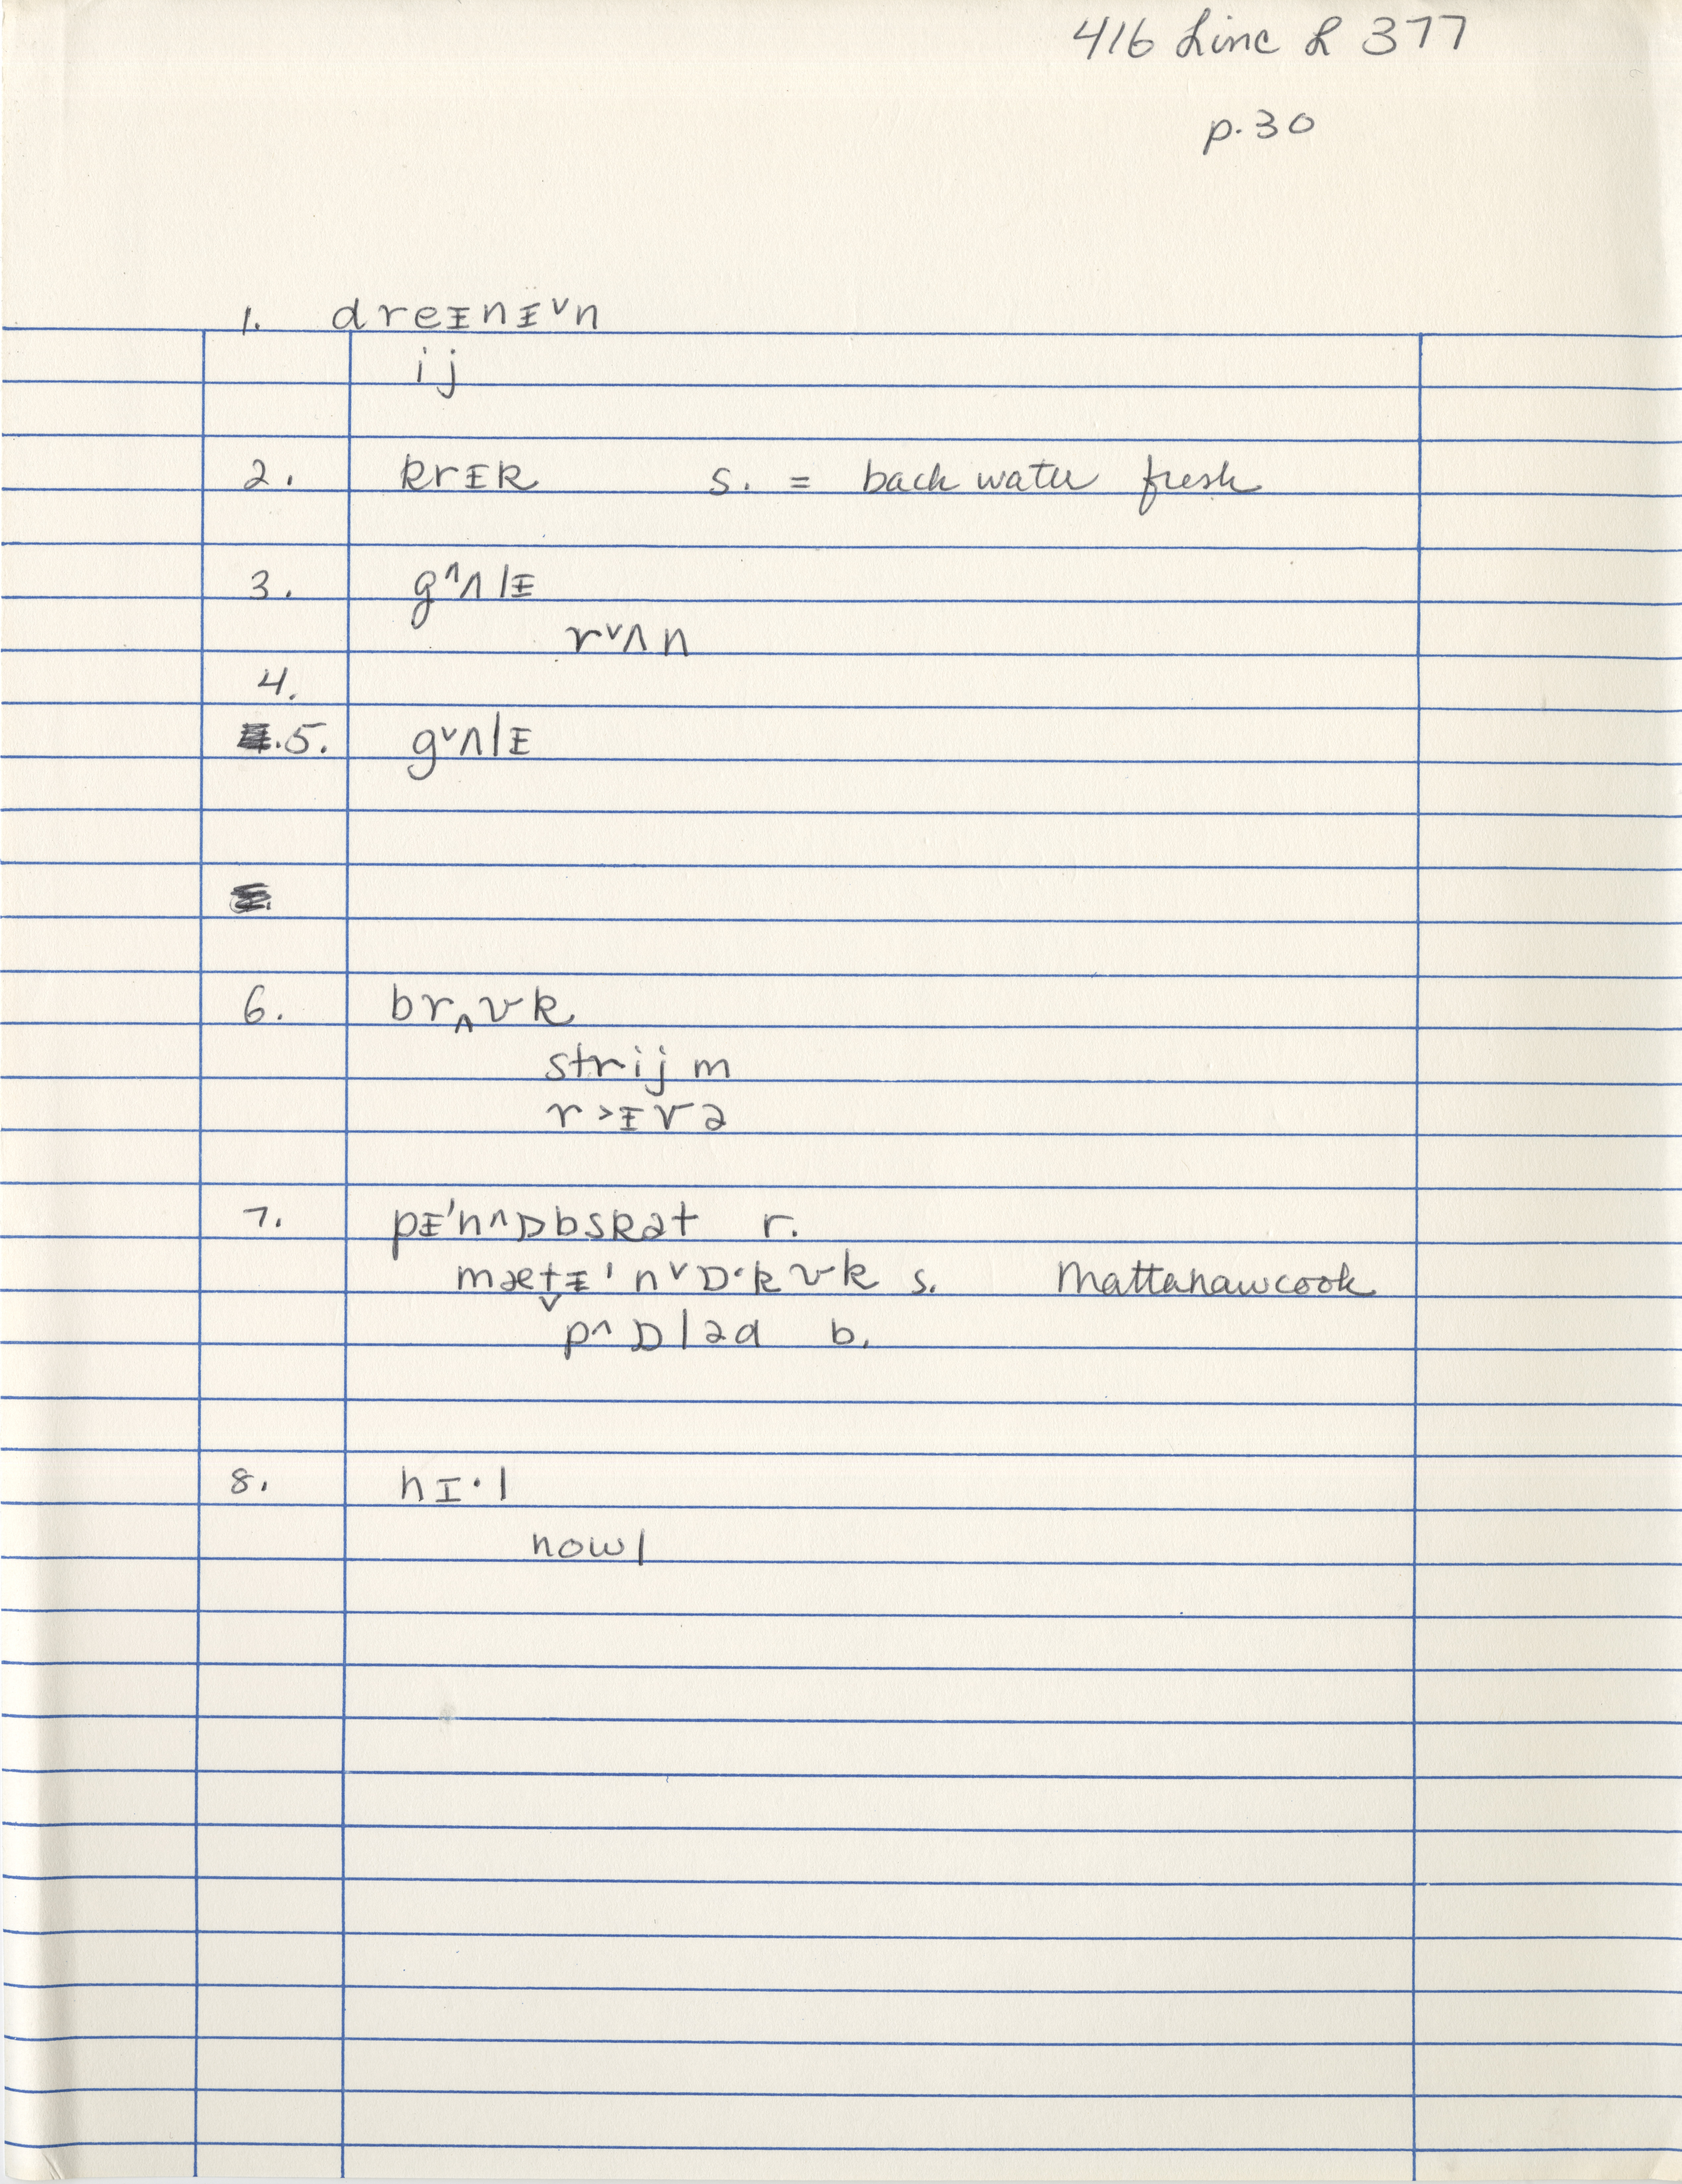 416 Linc L 377
p. 30
1. dreɪnɪ˅n
ij
2. krɪk s. = back water fresh
3. g^ʌlɪ
r˅ʌn
4.
5. g˅ʌlɪ
6. brʌvk
strijm
r>ɪvə
7. pɪ'n^ɒbskət r.
mætɪ'n˅ɒ·kvk s. Mattanawcook
p^ɒləd b.
8. hɪ·l
nowl